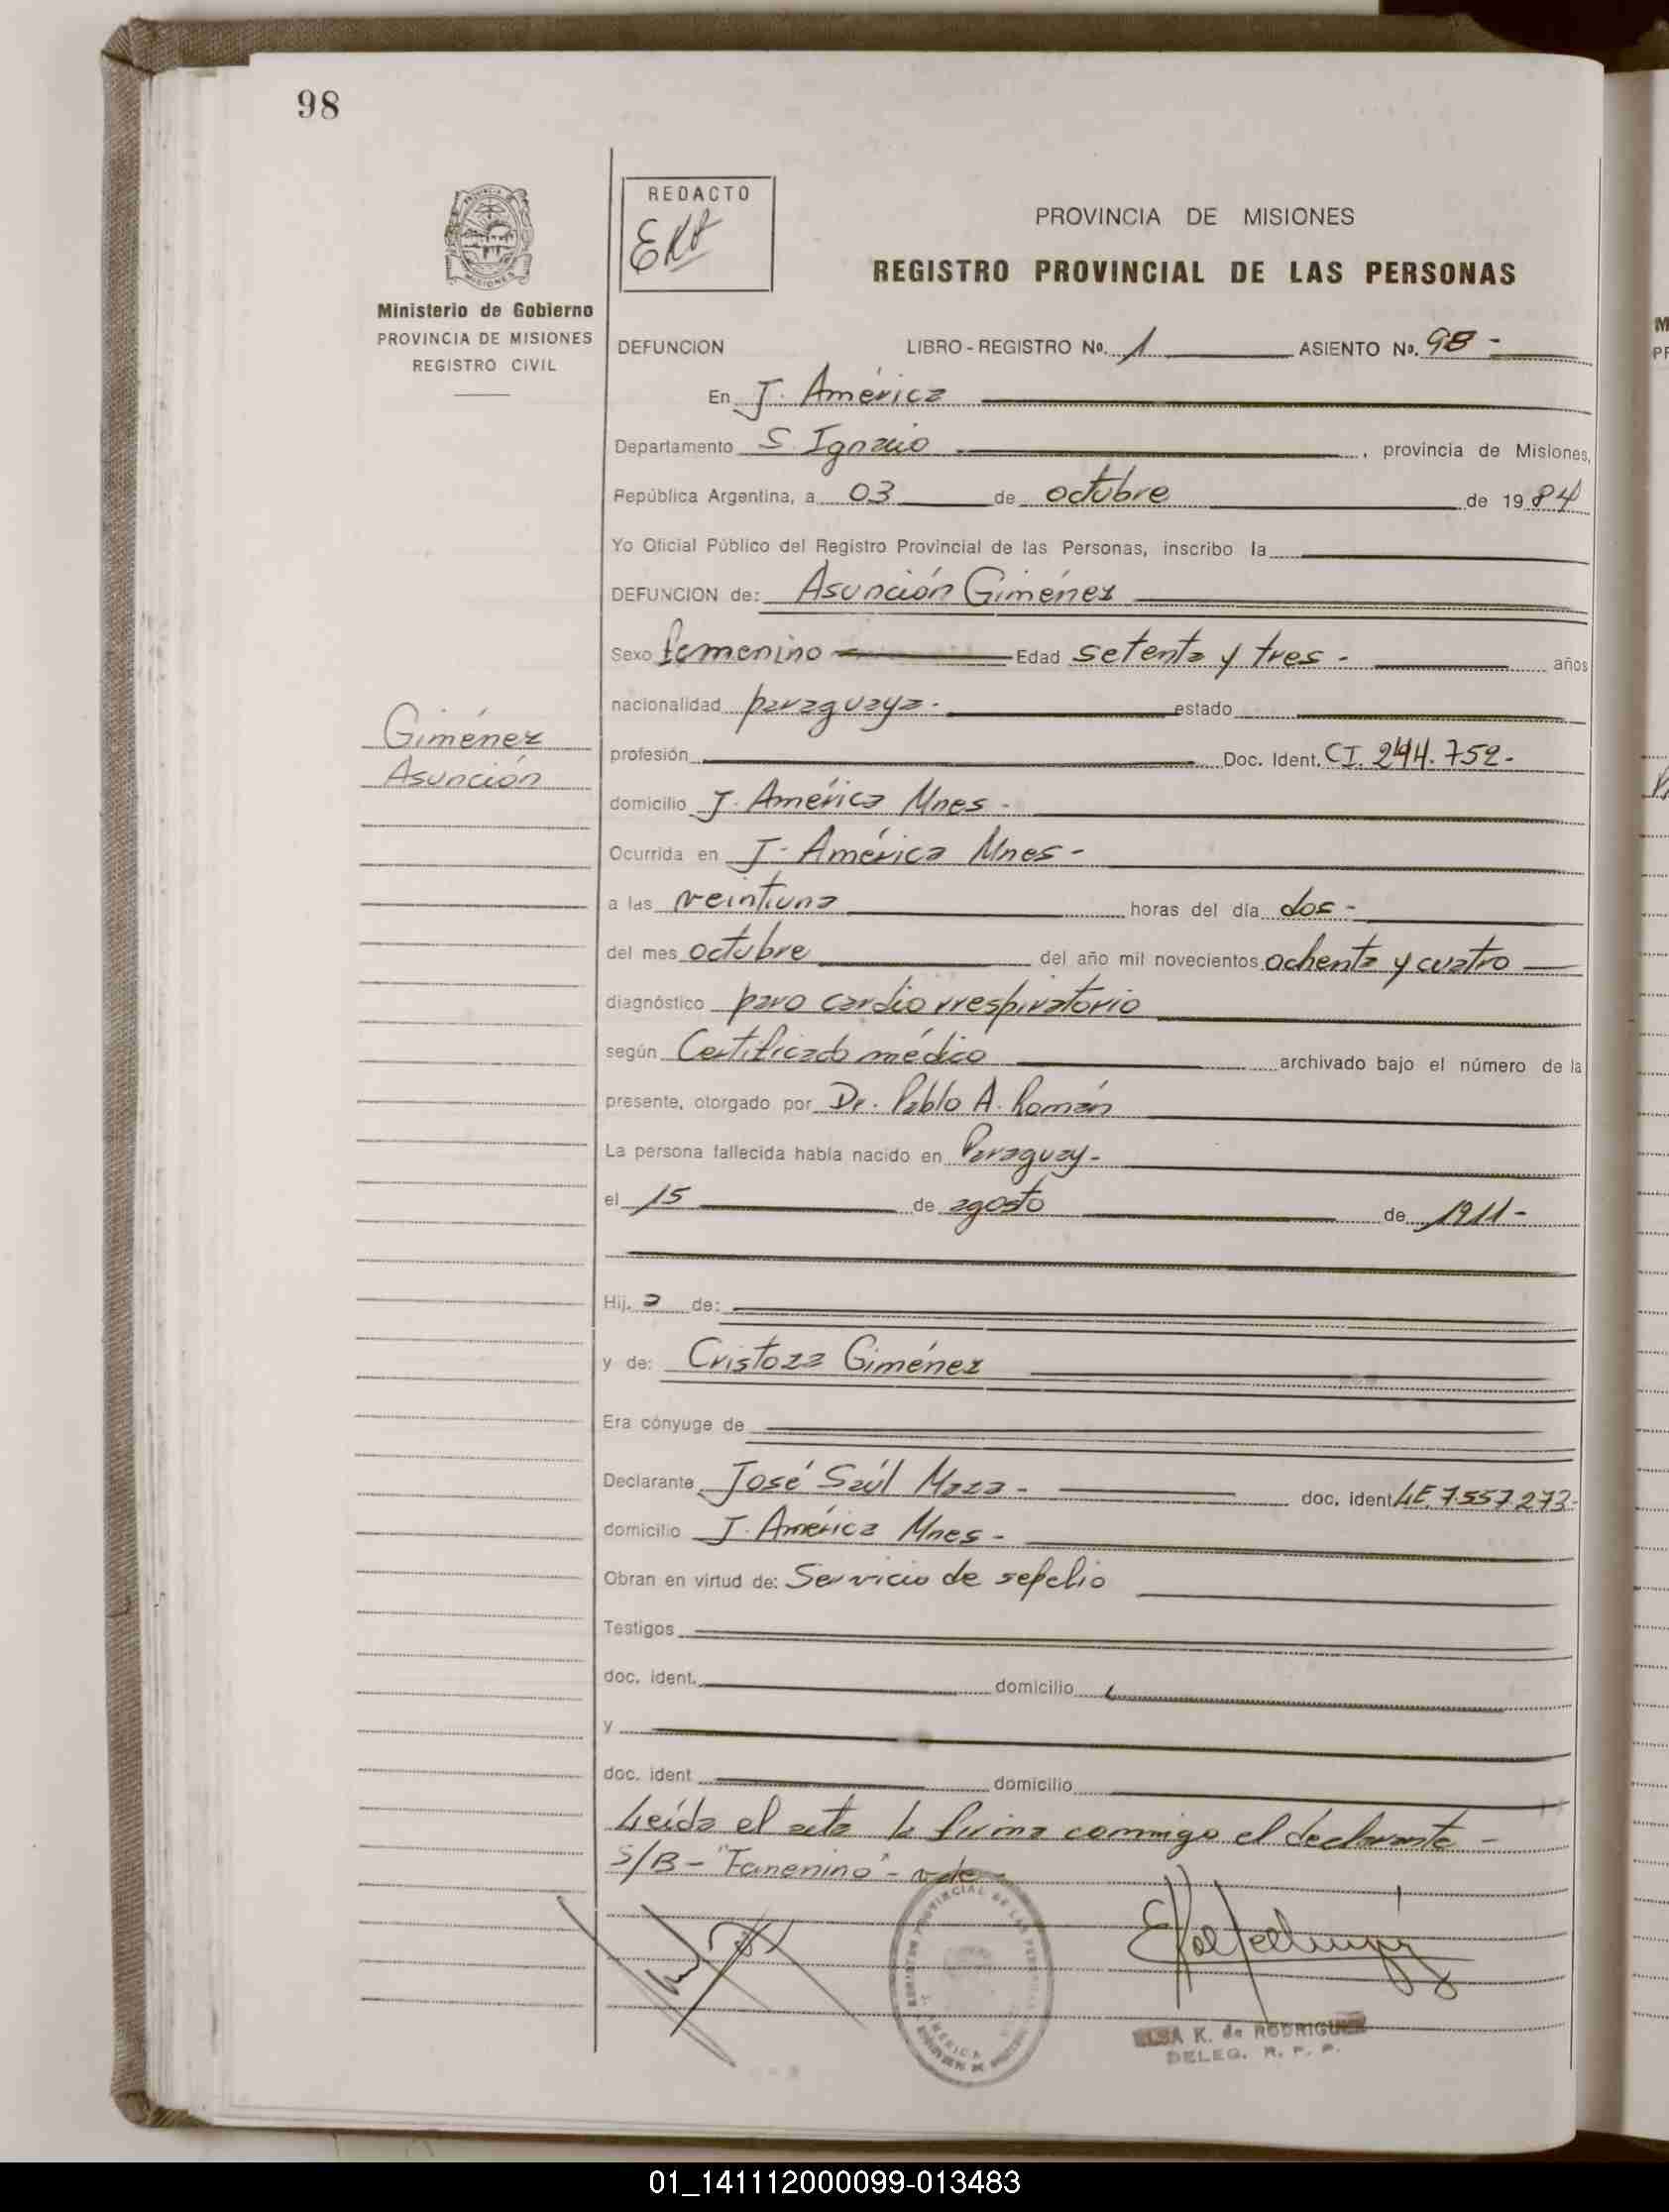 98
REDACTO
ERA
PROVINCIA DE MISIONES
REGISTRO PROVINCIAL DE LAS PERSONAS
Ministerio de Gobierno
PROVINCIA DE MISIONES
REGISTRO CIVIL
DEFUNCION LIBRO-REGISTRO No. 1 ASIENTO No. 98 -
En J. América
Departamento S. Ignacio , provincia de Misiones,
República Argentina, a 03 de octubre de 1984
Yo Oficial Público del Registro Provincial de las Personas, inscribo la
DEFUNCION de: Asunción Giménez
Sexo femenino Edad setenta y tres - años
nacionalidad paraguaya - estado
Giménez
Asunción
profesión Doc. Ident. CI. 244.752-
domicilio J. América Mnes -
Ocurrida en J- América Mnes -
a las veintiuna horas del día dos -
del mes octubre del año mil novecientos ochenta y cuatro
diagnóstico paro cardiorrespiratorio
según Certificado médico archivado bajo el número de la
presente, otorgado por Dr. Pablo A. Román
La persona fallecida había nacido en Paraguay -
el 15 de agosto de 1911 -
Hij. a de:
y de: Cristoza Giménez
Era cónyuge de
Declarante José Saúl Maza - doc. ident LE 7.557.273-
domicilio J. América Mnes -
Obran en virtud de: Servicio de sepelio
Testigos
doc. ident. domicilio
y
doc. ident domicilio
Leída el acta la firma conmigo el declarante -
S/B - "Femenino" - vale
ELSA K. de RODRIGUEZ
DELEG. R. P. P.
01_141112000099-013483